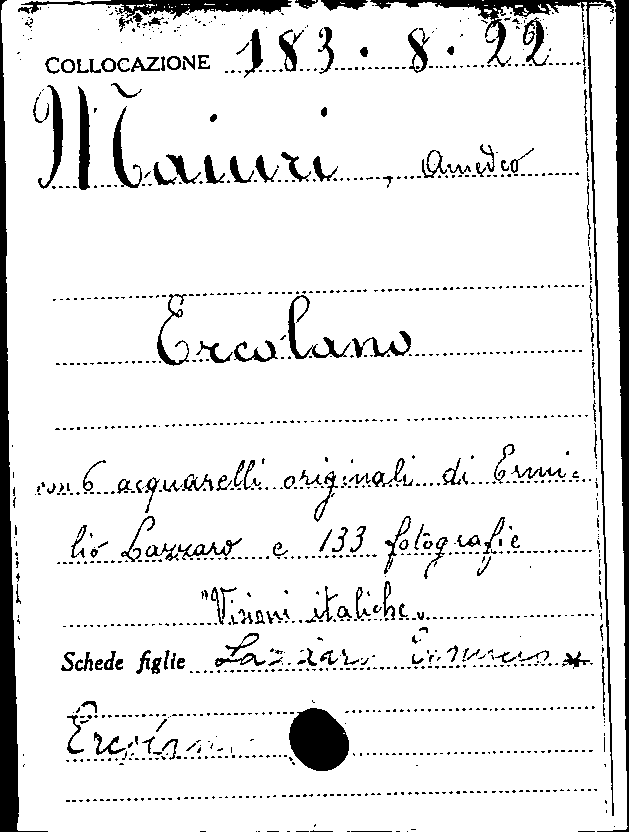 COLLOCAZIONE 183.8.22
Maiuri, Amedeo
Ercolano
con 6 acquarelli originali di Ermi-
lio Lazzaro e 133 fotografie
"Visioni italiche"
Schede figlie Lazzaro *
Ercolano